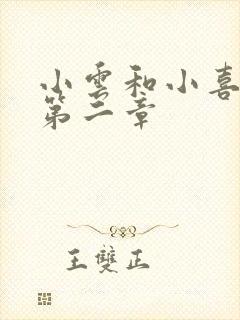 小雲和小喜
第二章
王雙正